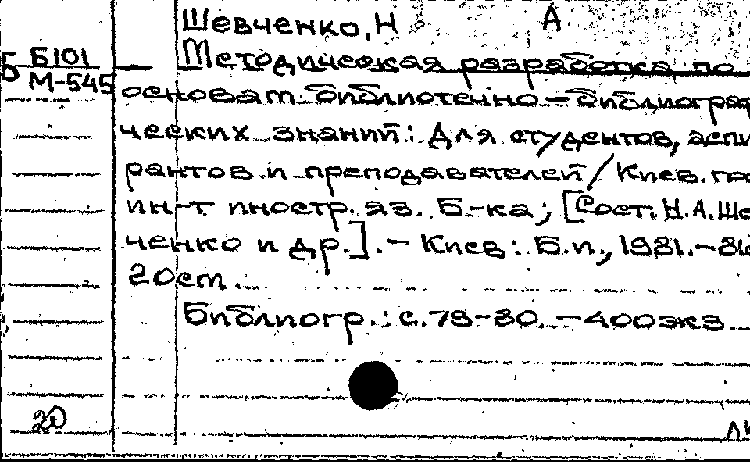 Шевченко, Н А
Б Б101 Методическая разработка по
М-545 основам библиотечно-библиогра
ческих знаний: Для студентов, аспи
рантов и преподавателей / Киев. г
ин-т иностр. яз. Б-ка; [Сост. Н.А. Ше
ченко и др.]. - Киев: Б.и., 1981. - 8
20 см.
Библиогр.: с. 78-80. - 400 экз
20